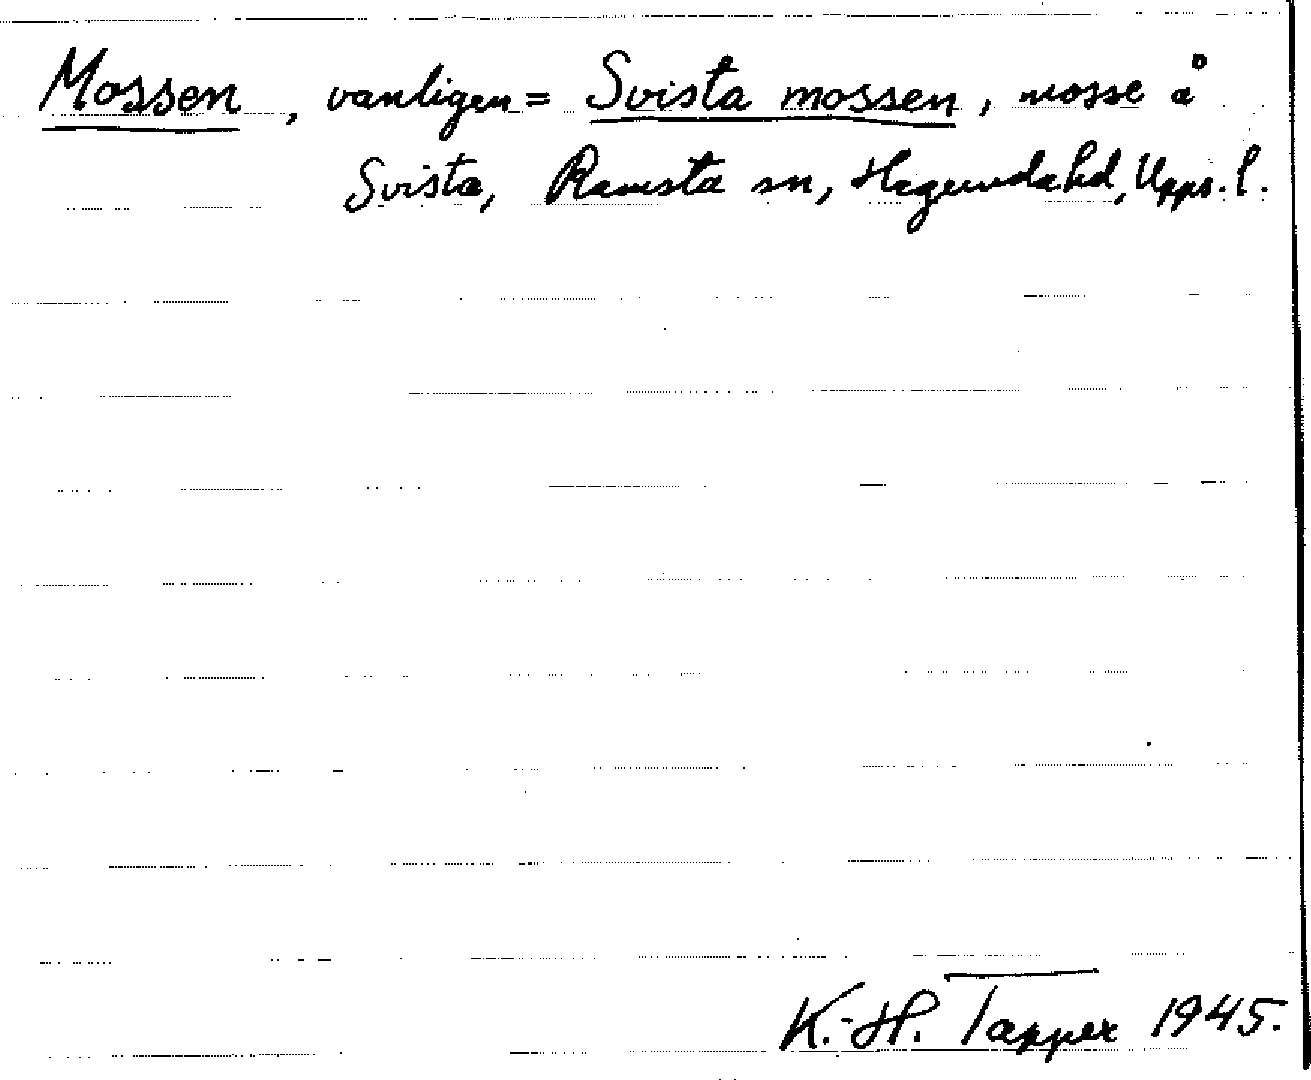 Mossen, vanligen = Svista mossen, mosse å
Svista, Ramsta sn, Hagunda hd, Upps. l.
K.-H. Tapper 1945.